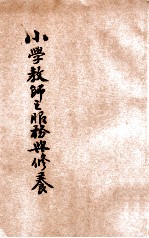 小學教師之服務與修養